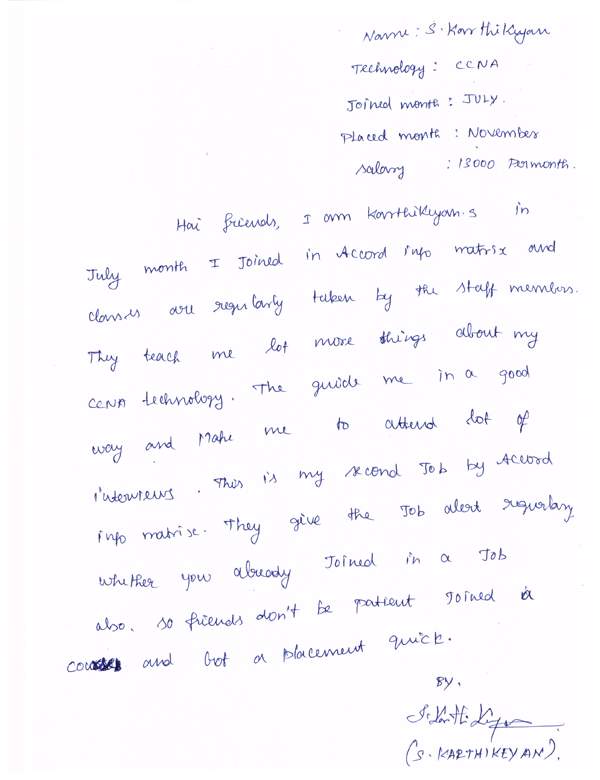 Name : S. Karthikeyan
Technology : CCNA
Joined month : JULY.
Placed month : November
Salary : 13000 Permonth.
Hai friends, I am Karthikeyan.s in
July month I Joined in Accord info matrix and
classes are regularly taken by the staff members.
They teach me lot more things about my
CCNA technology. The guide me in a good
way and Make me to attend lot of
interviews. This is my second Job by Accord
info matrix. They give the Job alert regurlary
whether you already Joined in a Job
also. so friends don't be patient Joined a
course and Got a placement quick.
BY,
S. Karthikeyan
(S. KARTHIKEYAN).